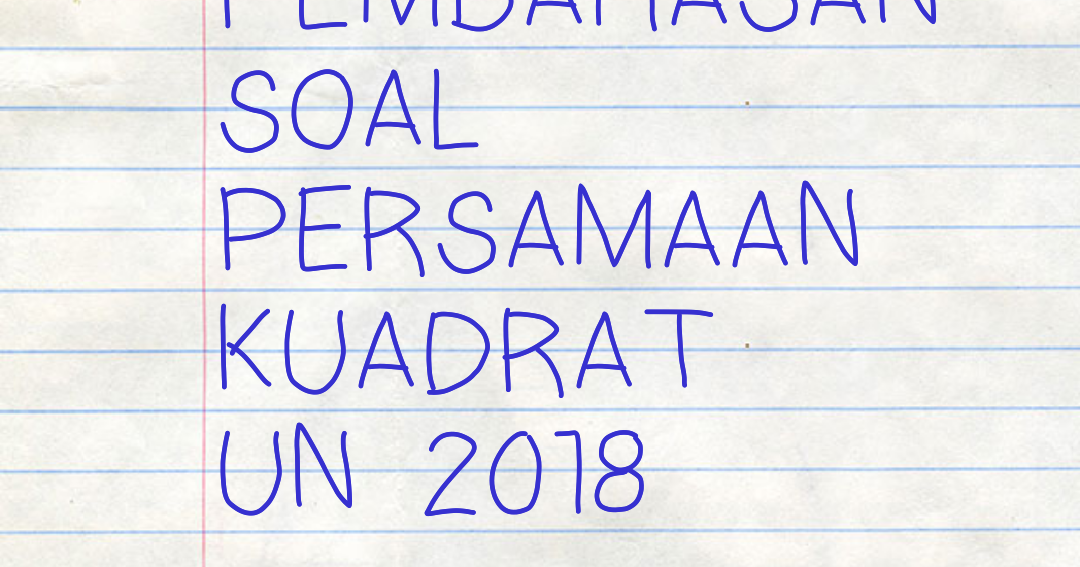 PEMBAHASAN
SOAL
PERSAMAAN
KUADRAT
UN 2018